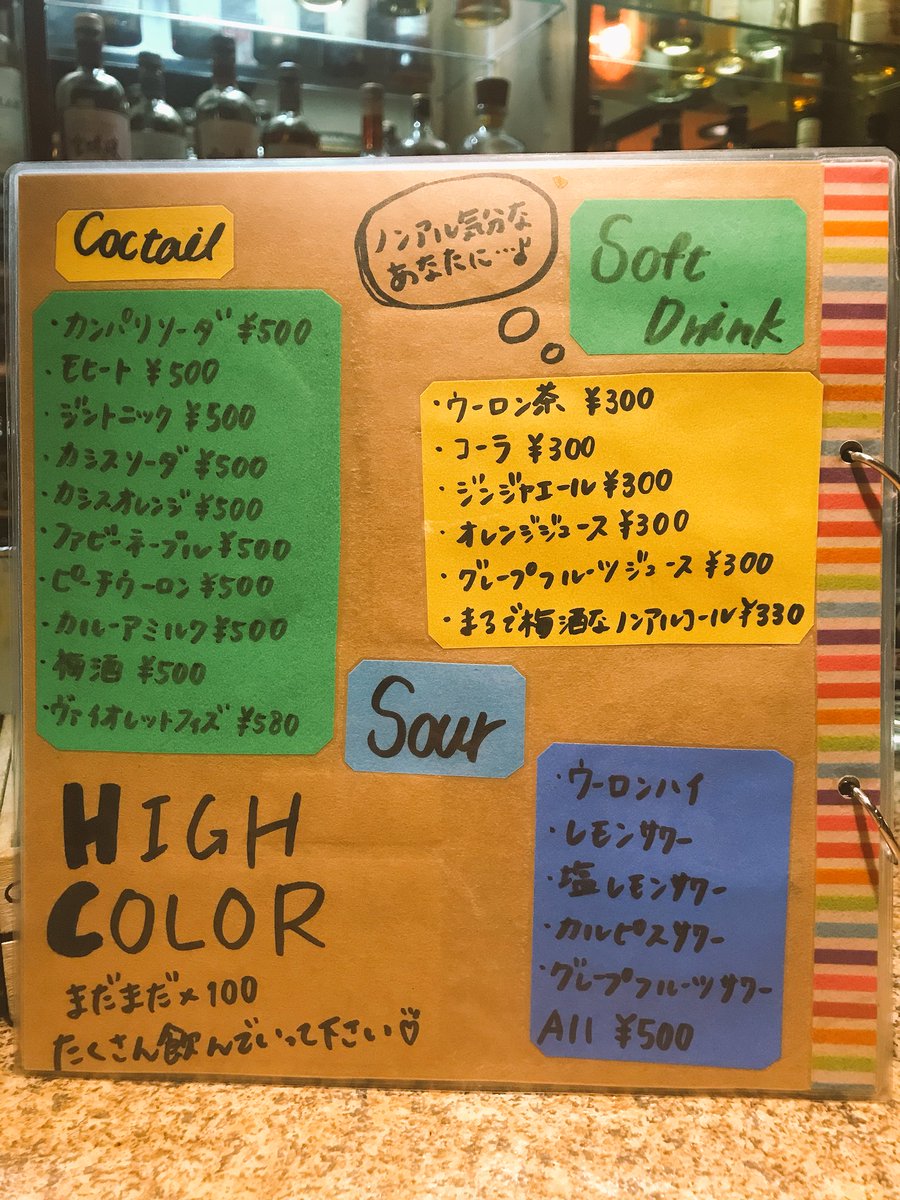 Coctail
・カンパリソーダ ¥500
・モヒート ¥500
・ジントニック ¥500
・カシスソーダ ¥500
・カシスオレンジ ¥500
・ファビーネーブル ¥500
・ピーチウーロン ¥500
・カルーアミルク ¥500
・梅酒 ¥500
・ヴァイオレットフィズ ¥580
ノンアル気分な
あなたに…♪
Soft
Drink
・ウーロン茶 ¥300
・コーラ ¥300
・ジンジャエール ¥300
・オレンジジュース ¥300
・グレープフルーツジュース ¥300
・まるで梅酒なノンアルコール ¥330
Sour
・ウーロンハイ
・レモンサワー
・塩レモンサワー
・カルピスサワー
・グレープフルーツサワー
All ¥500
HIGH
COLOR
まだまだ×100
たくさん飲んでいって下さい♡